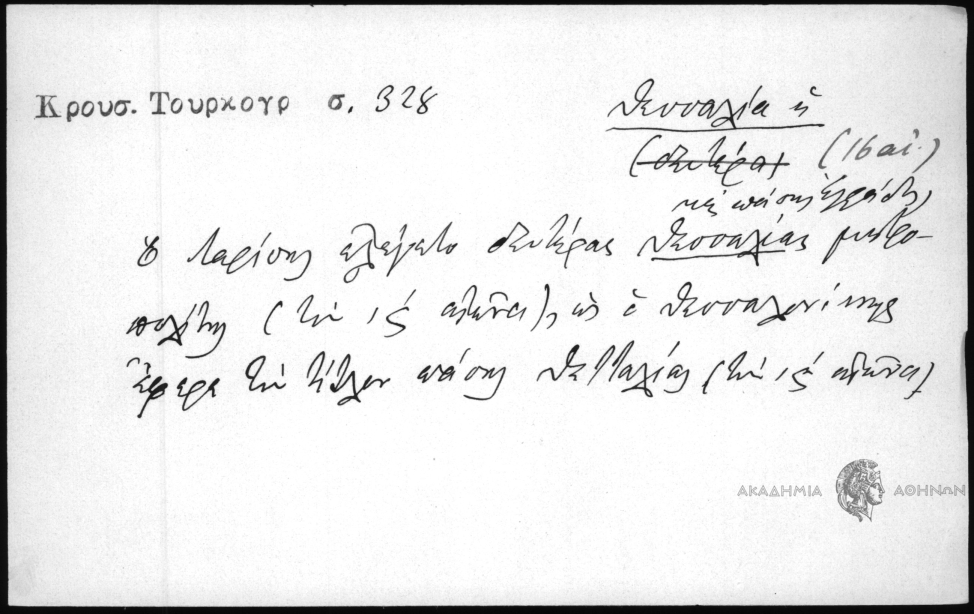 Κρουσ. Τουρκογρ σ. 328
Θεσσαλία ἡ
(δευτέρα) (16 αἰ.)
καὶ πάσης Ἑλλάδος,
Ὁ Λαρίσης ἐλέγετο δευτέρας Θεσσαλίας μητρο-
πολίτης (τὸν ιϛ΄ αἰῶνα), ὡς ὁ Θεσσαλονίκης
ἔφερε τὸν τίτλον πάσης Θετταλίας (τὸν ιϛ΄ αἰῶνα)
ΑΚΑΔΗΜΙΑ ΑΘΗΝΩΝ